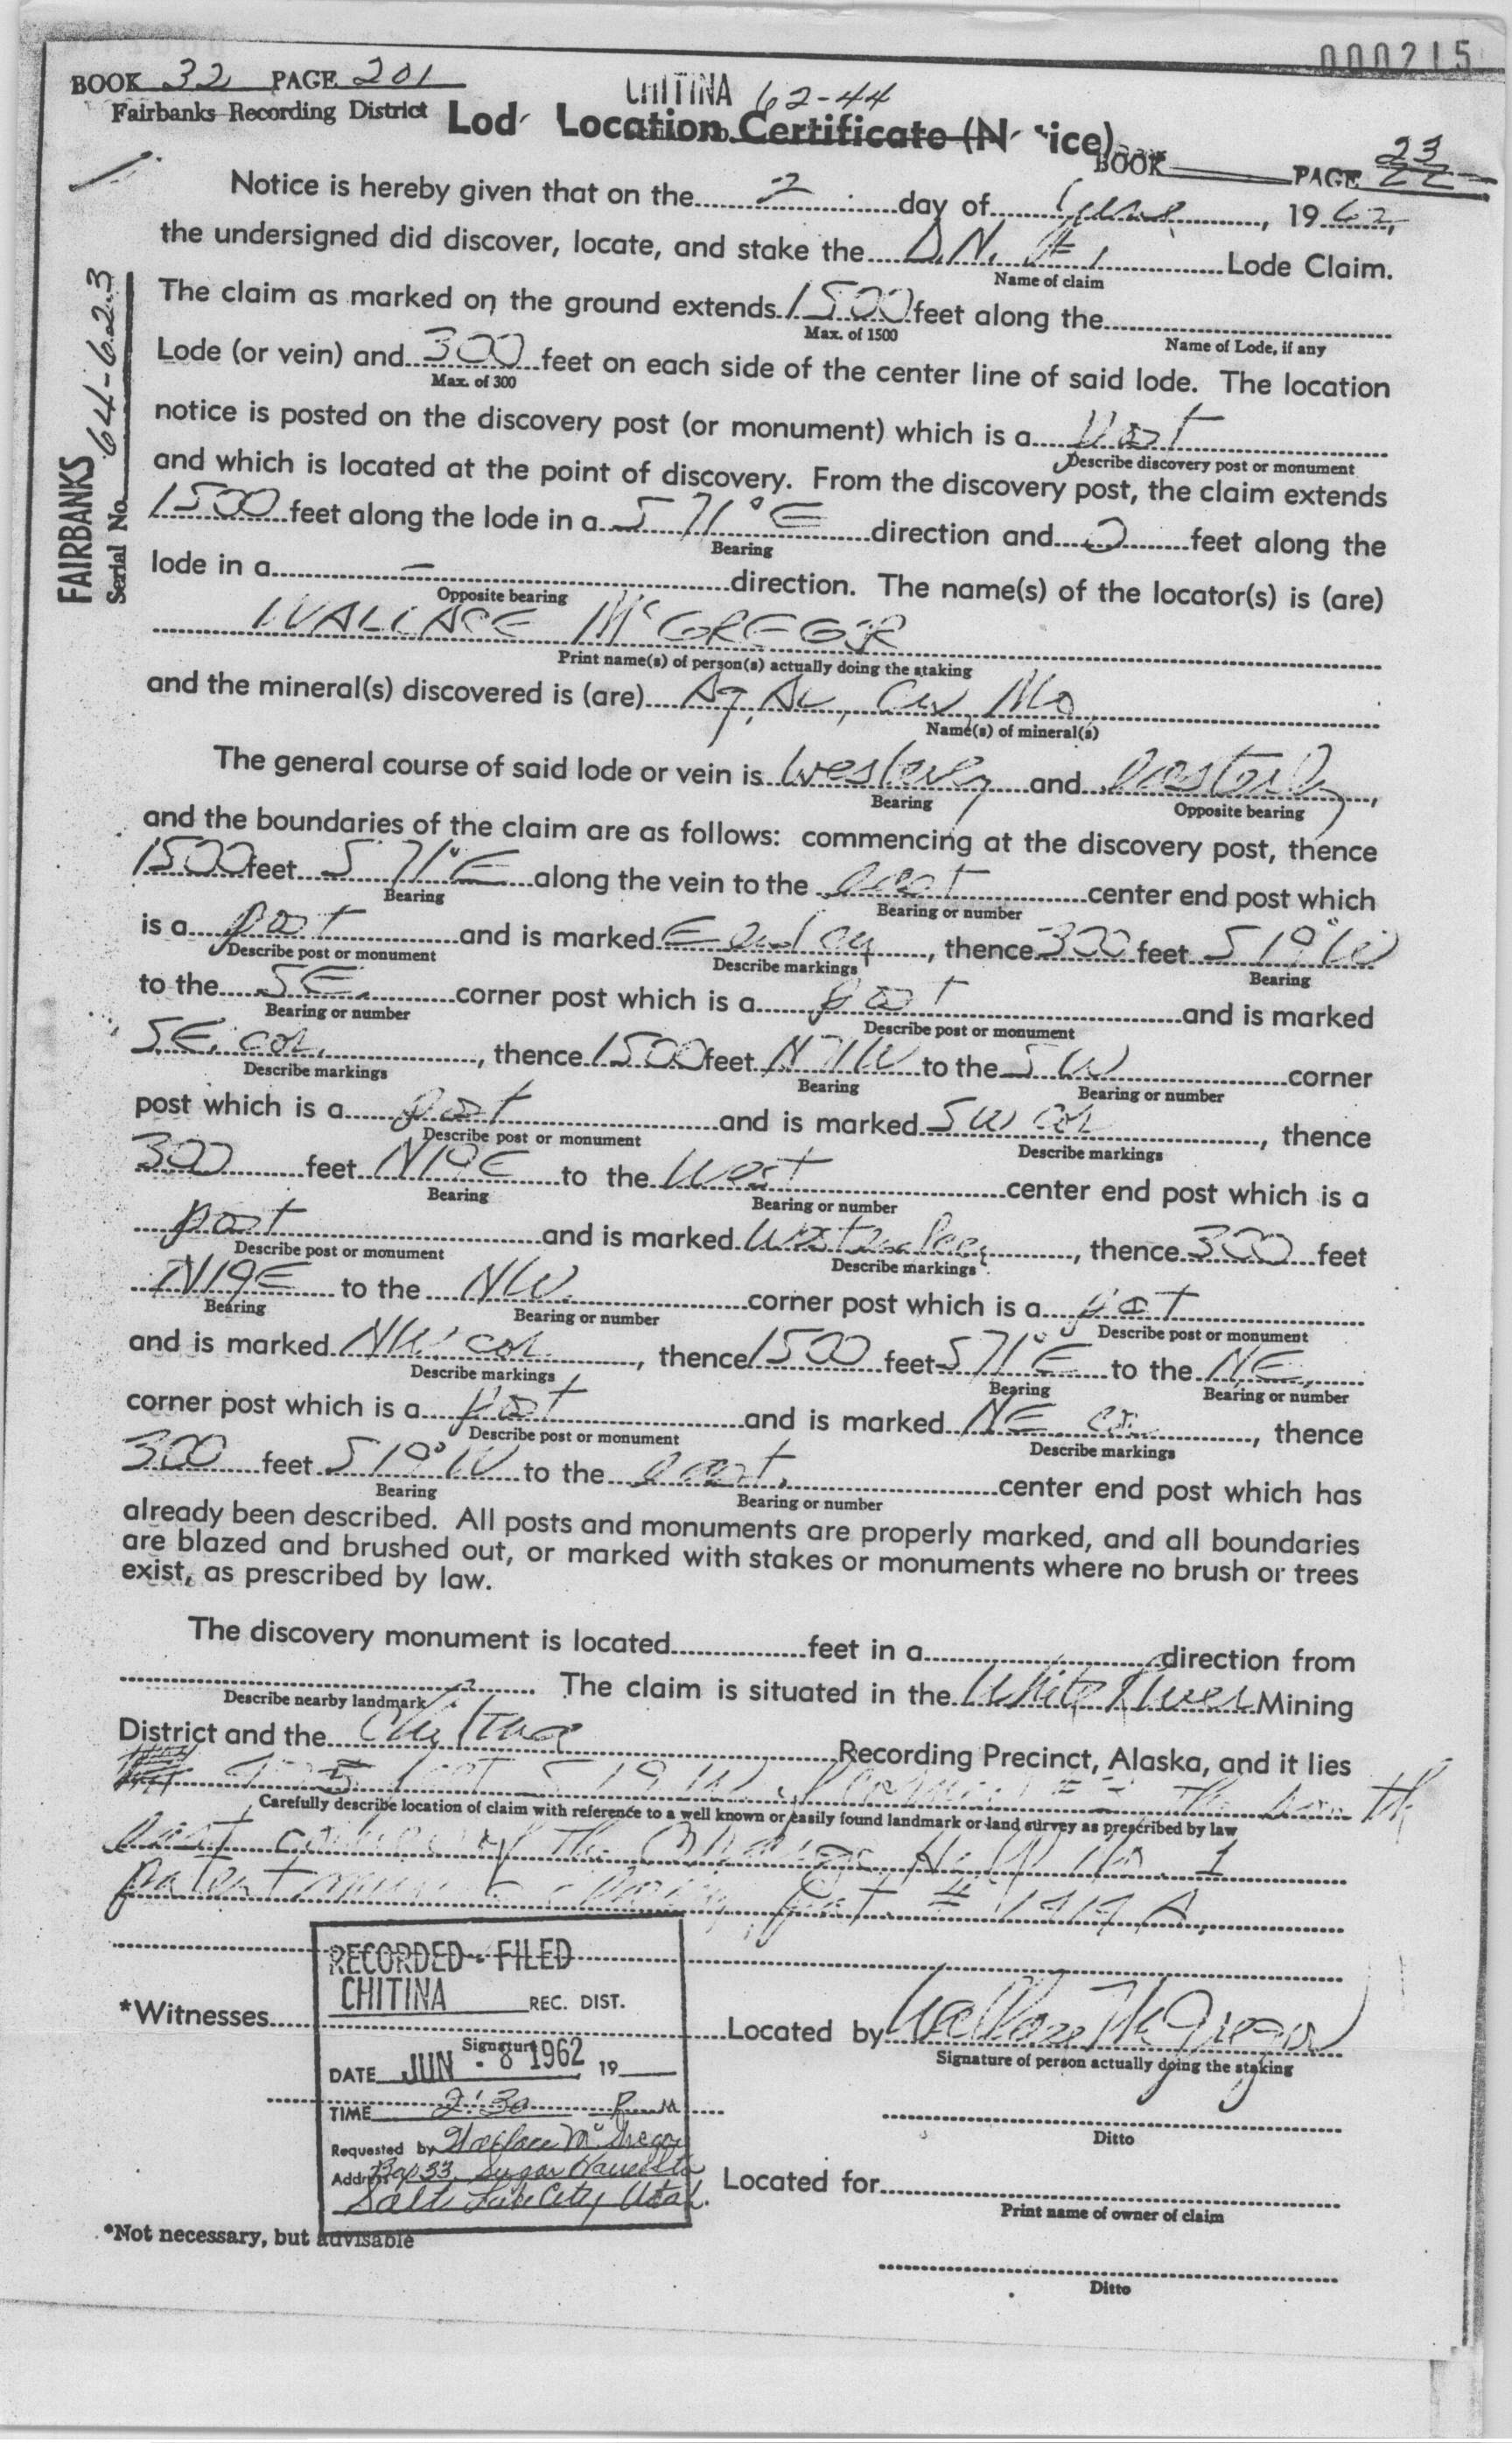 000215
BOOK 32 PAGE 201
CHITINA 62-44
Fairbanks Recording District
Lod Location Certificate (N tice)
BOOK PAGE 23
22
Notice is hereby given that on the 2 day of June, 1962,
the undersigned did discover, locate, and stake the D.N. # 1 Lode Claim.
Name of claim
The claim as marked on the ground extends 1500 feet along the
Max. of 1500 Name of Lode, if any
Lode (or vein) and 300 feet on each side of the center line of said lode. The location
Max. of 300
notice is posted on the discovery post (or monument) which is a post
Describe discovery post or monument
and which is located at the point of discovery. From the discovery post, the claim extends
1500 feet along the lode in a S 71° E direction and 0 feet along the
Bearing
lode in a — direction. The name(s) of the locator(s) is (are)
Opposite bearing
WALLACE McGREGOR
Print name(s) of person(s) actually doing the staking
and the mineral(s) discovered is (are) Ag, Au, Cu, Mo
Name(s) of mineral(s)
The general course of said lode or vein is westerly and easterly,
Bearing Opposite bearing
and the boundaries of the claim are as follows: commencing at the discovery post, thence
1500 feet S 71° E along the vein to the east center end post which
Bearing Bearing or number
is a post and is marked E end, thence 300 feet S 19° W
Describe post or monument Describe markings Bearing
to the SE. corner post which is a post and is marked
Bearing or number Describe post or monument
S.E. cor., thence 1500 feet N 71 W to the SW corner
Describe markings Bearing Bearing or number
post which is a post and is marked SW cor, thence
Describe post or monument Describe markings
300 feet N19E to the West center end post which is a
Bearing Bearing or number
post and is marked, thence 300 feet
Describe post or monument Describe markings
N19E to the NW. corner post which is a post
Bearing Bearing or number Describe post or monument
and is marked NW cor., thence 1500 feet S71° E to the NE.
Describe markings Bearing Bearing or number
corner post which is a post and is marked NE cor, thence
Describe post or monument Describe markings
300 feet S 19° W to the east. center end post which has
Bearing Bearing or number
already been described. All posts and monuments are properly marked, and all boundaries
are blazed and brushed out, or marked with stakes or monuments where no brush or trees
exist, as prescribed by law.
The discovery monument is located feet in a direction from
The claim is situated in the White River Mining
Describe nearby landmark
District and the Chitina Recording Precinct, Alaska, and it lies
feet S 19 W
Carefully describe location of claim with reference to a well known or easily found landmark or land survey as prescribed by law
east corner of the No. 1
patent pat. # 1414 A.
RECORDED - FILED
CHITINA REC. DIST.
*Witnesses Located by Wallace McGregor
Signature Signature of person actually doing the staking
DATE JUN - 8 1962 19
TIME 2:30 P. M
Ditto
Requested by Wallace McGregor
Address Box 33, Sugar House Sta
Salt Lake City, Utah.
Located for
Print name of owner of claim
*Not necessary, but advisable
Ditto
FAIRBANKS
Serial No. 64-623